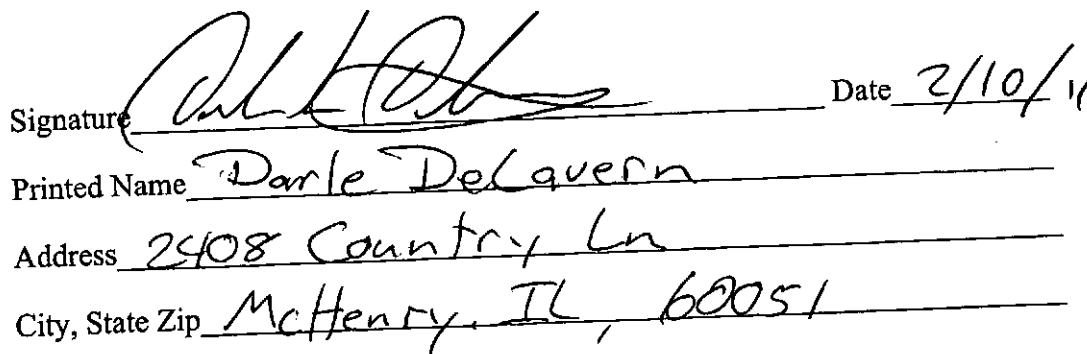 Signature Date 2/10/
Printed Name Darle DeLavern
Address 2408 Country Ln
City, State Zip McHenry, IL, 60051